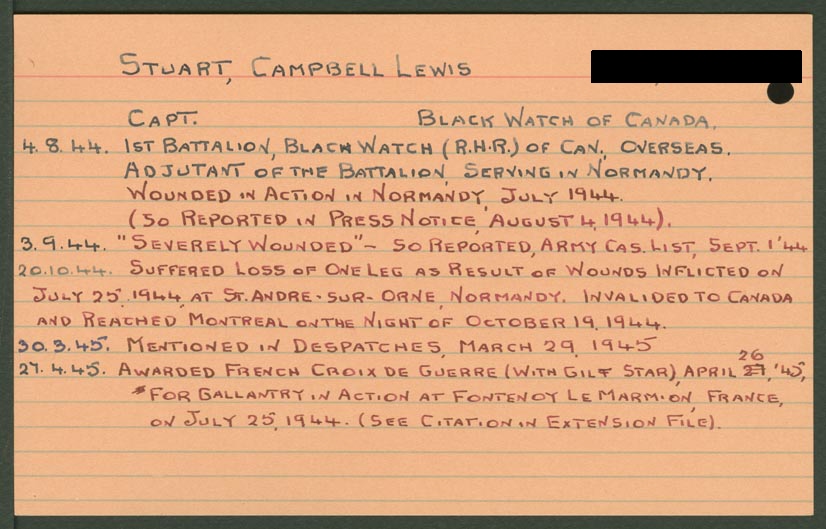 STUART, CAMPBELL LEWIS
CAPT. BLACK WATCH OF CANADA.
4.8.44. 1ST BATTALION, BLACK WATCH (R.H.R.) OF CAN. OVERSEAS.
ADJUTANT OF THE BATTALION, SERVING IN NORMANDY.
WOUNDED IN ACTION IN NORMANDY, JULY 1944.
(SO REPORTED IN PRESS NOTICE, AUGUST 4, 1944).
3.9.44. "SEVERELY WOUNDED" - SO REPORTED, ARMY CAS. LIST, SEPT. 1'44
20.10.44. SUFFERED LOSS OF ONE LEG AS RESULT OF WOUNDS INFLICTED ON
JULY 25, 1944, AT ST. ANDRE-SUR-ORNE, NORMANDY. INVALIDED TO CANADA
AND REACHED MONTREAL ON THE NIGHT OF OCTOBER 19, 1944.
30.3.45. MENTIONED IN DESPATCHES, MARCH 29, 1945
26
27.4.45. AWARDED FRENCH CROIX DE GUERRE (WITH GILT STAR), APRIL 27, '45,
"FOR GALLANTRY IN ACTION AT FONTENOY LE MARMION, FRANCE,
ON JULY 25, 1944. (SEE CITATION IN EXTENSION FILE).